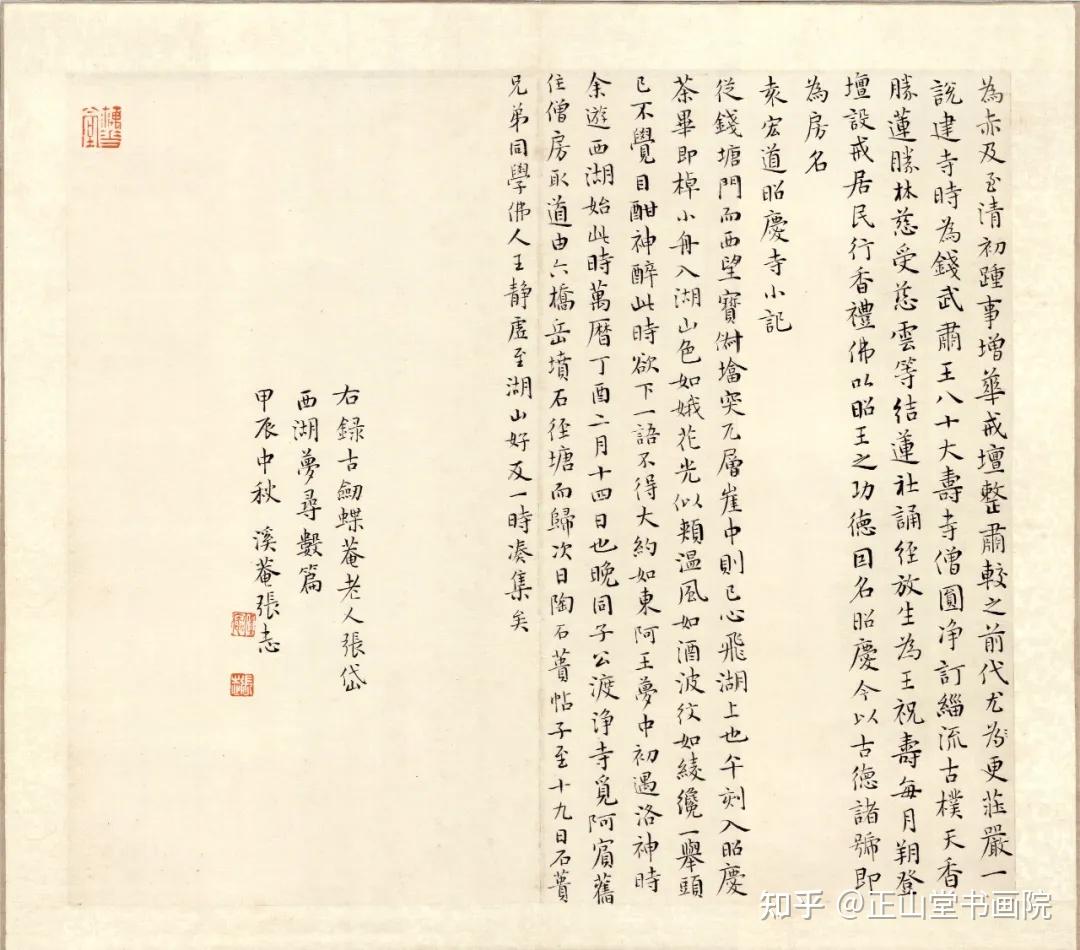 為赤及至清初踵事增華戒壇整肅較之前代尤為更莊嚴一
說建寺時為錢武肅王八十大壽寺僧圓净訂緇流古樸天香
勝蓮勝林慈受慈雲等結蓮社誦經放生為王祝壽每月朔登
壇設戒居民行香禮佛以昭王之功德因名昭慶今以古德諸號即
為房名
袁宏道昭慶寺小記
從錢塘門而西望寶尌墖突兀層崖中則已心飛湖上也午刻入昭慶
茶畢即棹小舟入湖山色如娥花光似頰溫風如酒波紋如綾纔一舉頭
已不覺目酣神醉此時欲下一語不得大約如東阿王夢中初遇洛神時
余遊西湖始此時萬曆丁酉二月十四日也晚同子公渡净寺覓阿賓舊
住僧房取道由六橋岳墳石径塘而歸次日陶石蕢帖子至十九日石蕢
兄弟同學佛人王静虛至湖山好友一時凑集矣
右録古劎蝶菴老人張岱
西湖夢尋數篇
甲辰中秋 溪菴張志
知乎 @正山堂书画院